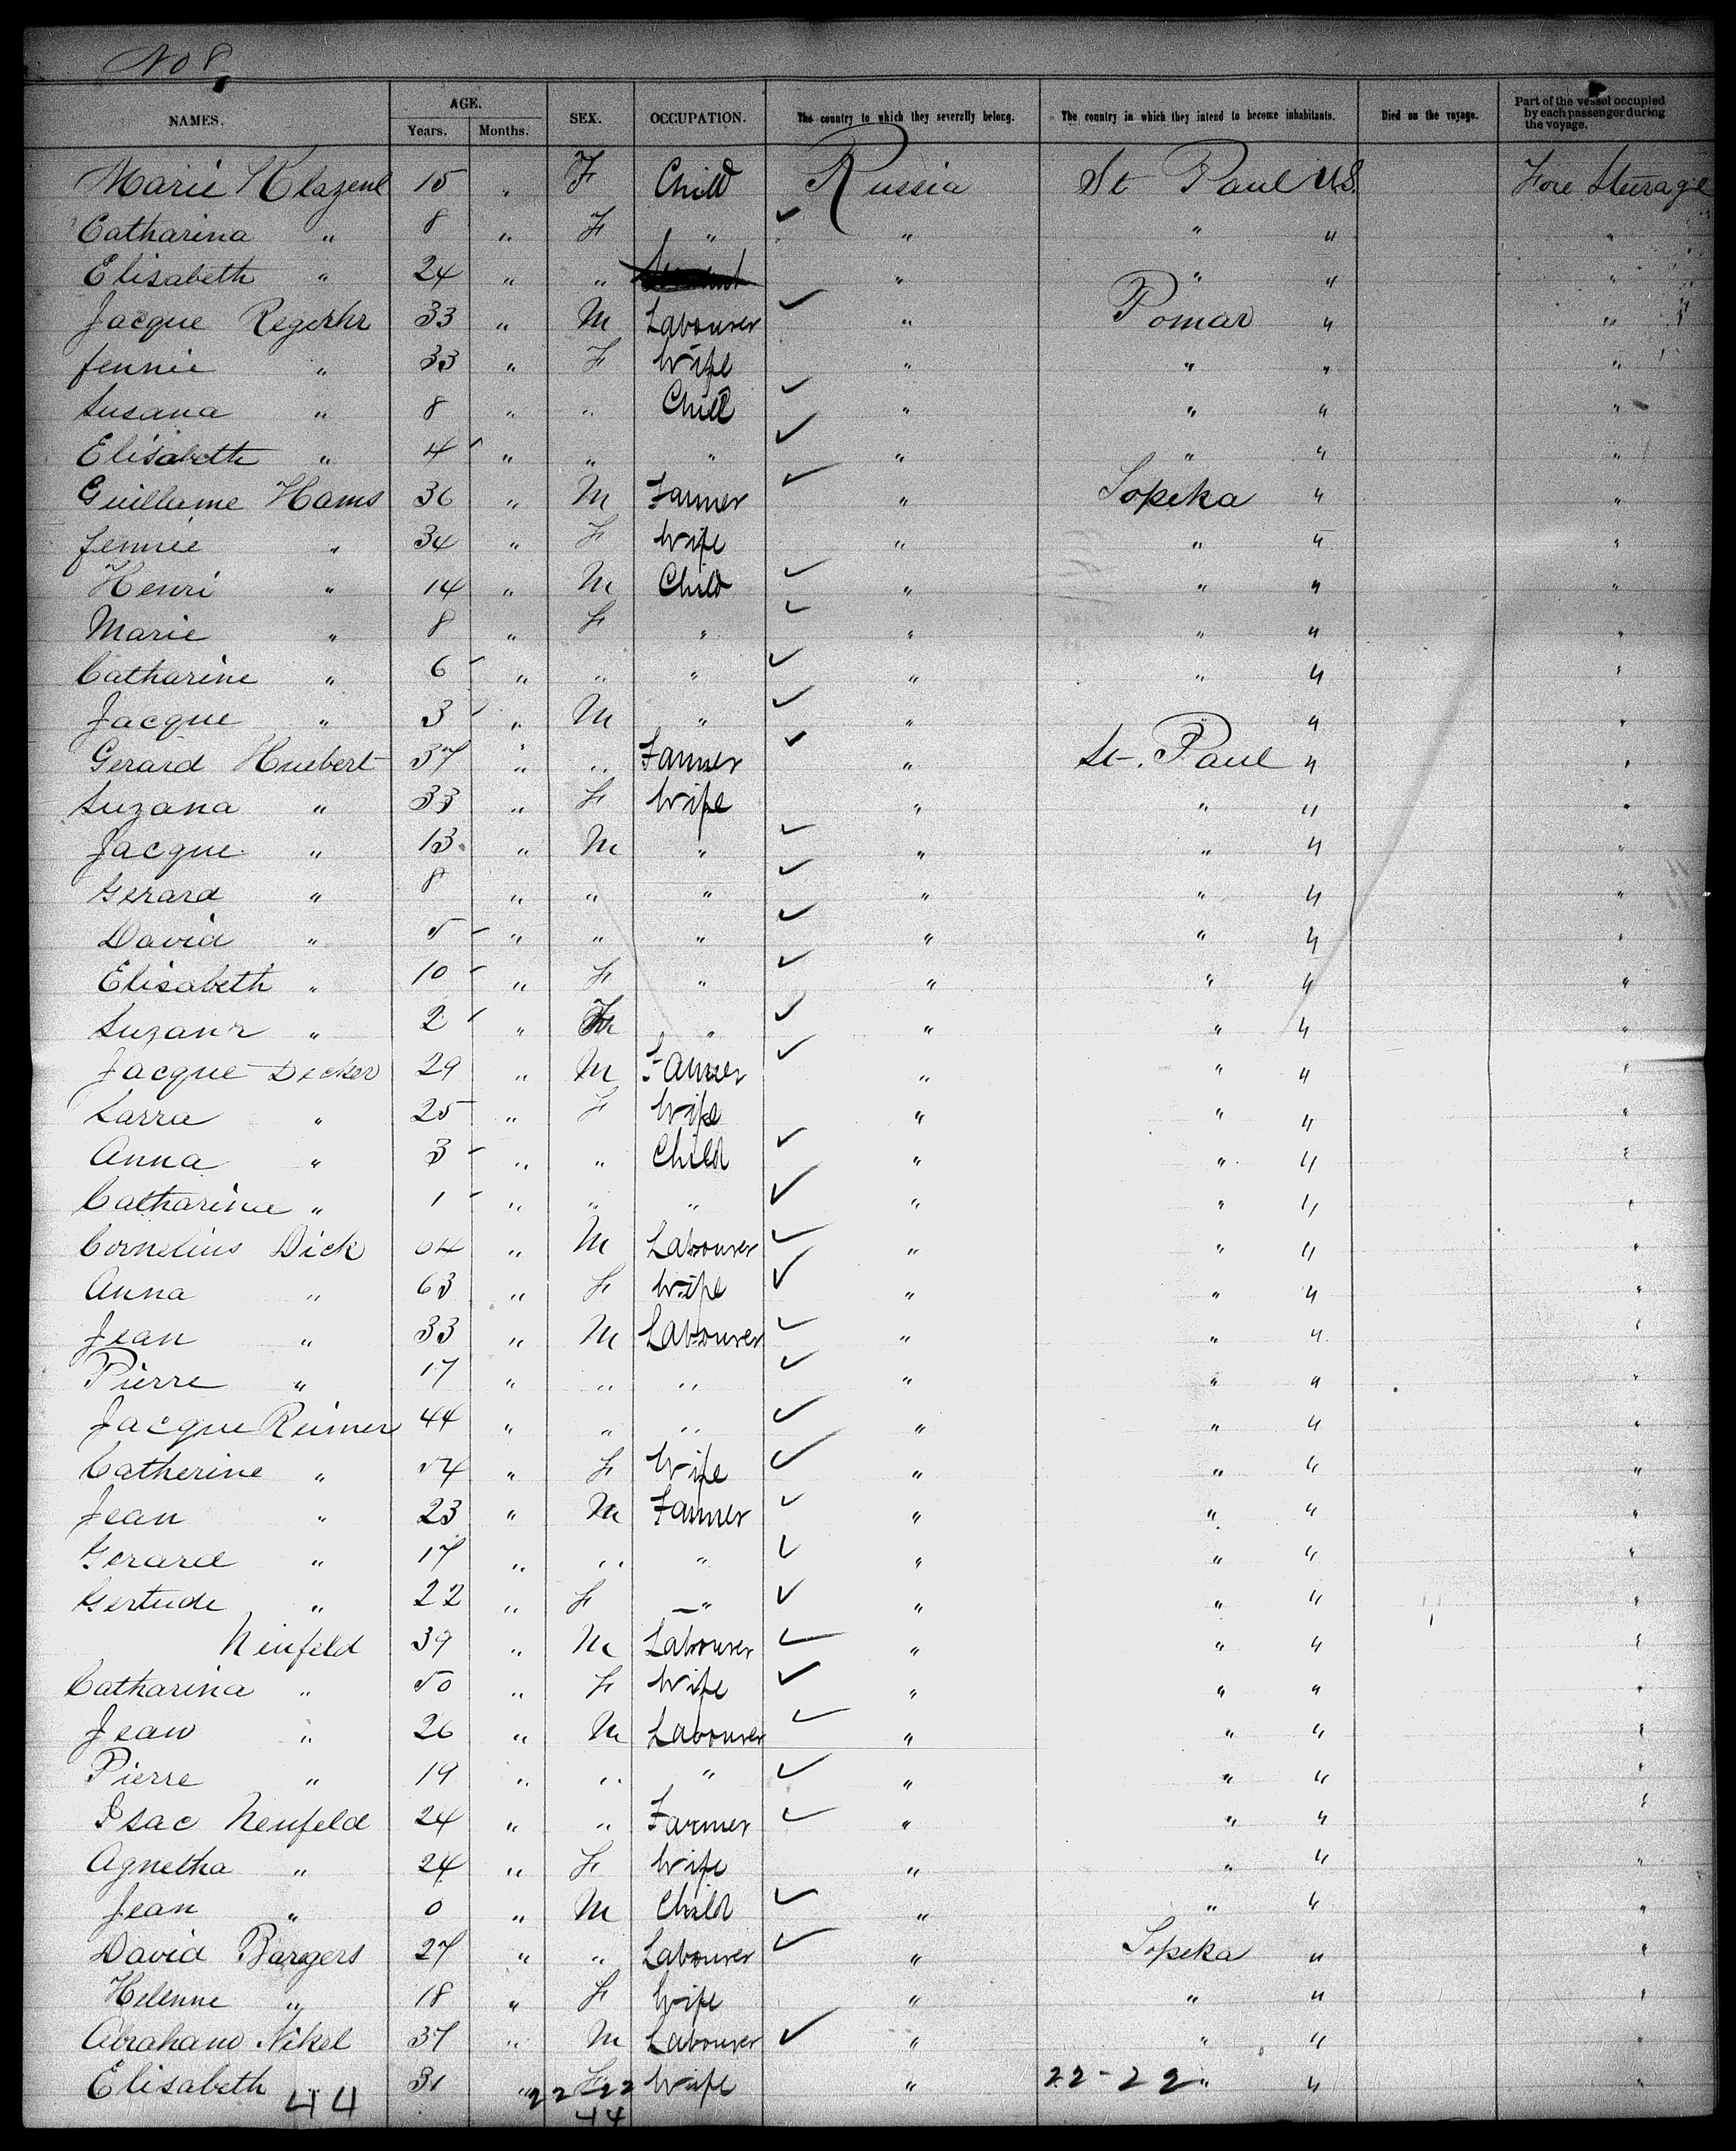 No 8
NAMES. AGE. Years. Months. SEX. OCCUPATION. The country to which they severally belong. The country in which they intend to become inhabitants. Died on the voyage. Part of the vessel occupied by each passenger during the voyage.
Marie Klazene 15 " F Child Russia St Paul U.S. Fore Sturage
Catharina " 8 " F " ✓ " " " "
Elisabeth " 24 " " " " " "
Jacque Regerhr 33 " M Labourer ✓ " Pomar " "
Jennie " 33 " F Wife " " " "
Susana " 8 " " Child ✓ " " " "
Elisabeth " 4 " " " ✓ " " " "
Guillaume Hams 36 " M Farmer ✓ " Topeka " "
Jennie " 34 " F Wife " " " "
Henri " 14 " M Child ✓ " " " "
Marie " 8 " F " ✓ " " " "
Catharine " 6 " " " ✓ " " " "
Jacque " 3 " M " ✓ " " " "
Gerard Huebert 37 " " Farmer ✓ " St. Paul " "
Suzana " 33 " F Wife " " " "
Jacque " 13 " M " ✓ " " " "
Gerard " 8 " " " ✓ " " " "
David " 5 " " " ✓ " " " "
Elisabeth " 10 " F " ✓ " " " "
Suzann " 2 " " ✓ " " " "
Jacque Decker 29 " M Farmer ✓ " " " "
Sarra " 25 " F Wife " " " "
Anna " 3 " " Child ✓ " " " "
Catharine " 1 " " " ✓ " " " "
Cornelius Dick 64 " M Labourer ✓ " " " "
Anna " 63 " F Wife ✓ " " " "
Jean " 33 " M Labourer ✓ " " " "
Pierre " 17 " " " ✓ " " " "
Jacque Reimer 44 " " " ✓ " " " "
Catherine " 54 " F Wife ✓ " " " "
Jean " 23 " M Farmer ✓ " " " "
Gerard " 17 " " " ✓ " " " "
Gertude " 22 " F " ✓ " " " "
Neufeld 39 " M Labourer ✓ " " " "
Catharina " 50 " F Wife ✓ " " " "
Jean " 26 " M Labourer ✓ " " " "
Pierre " 19 " " " ✓ " " " "
Isac Neufeld 24 " " Farmer ✓ " " " "
Agnetha " 24 " F Wife " " " "
Jean " 0 " M Child ✓ " " " "
David Bargers 27 " " Labourer ✓ " Topeka " "
Helenne " 18 " F Wife " " " "
Abraham Nikel 37 " M Labourer ✓ " " " "
Elisabeth " 31 " F Wife " " " "
44 22-22 22-22
44